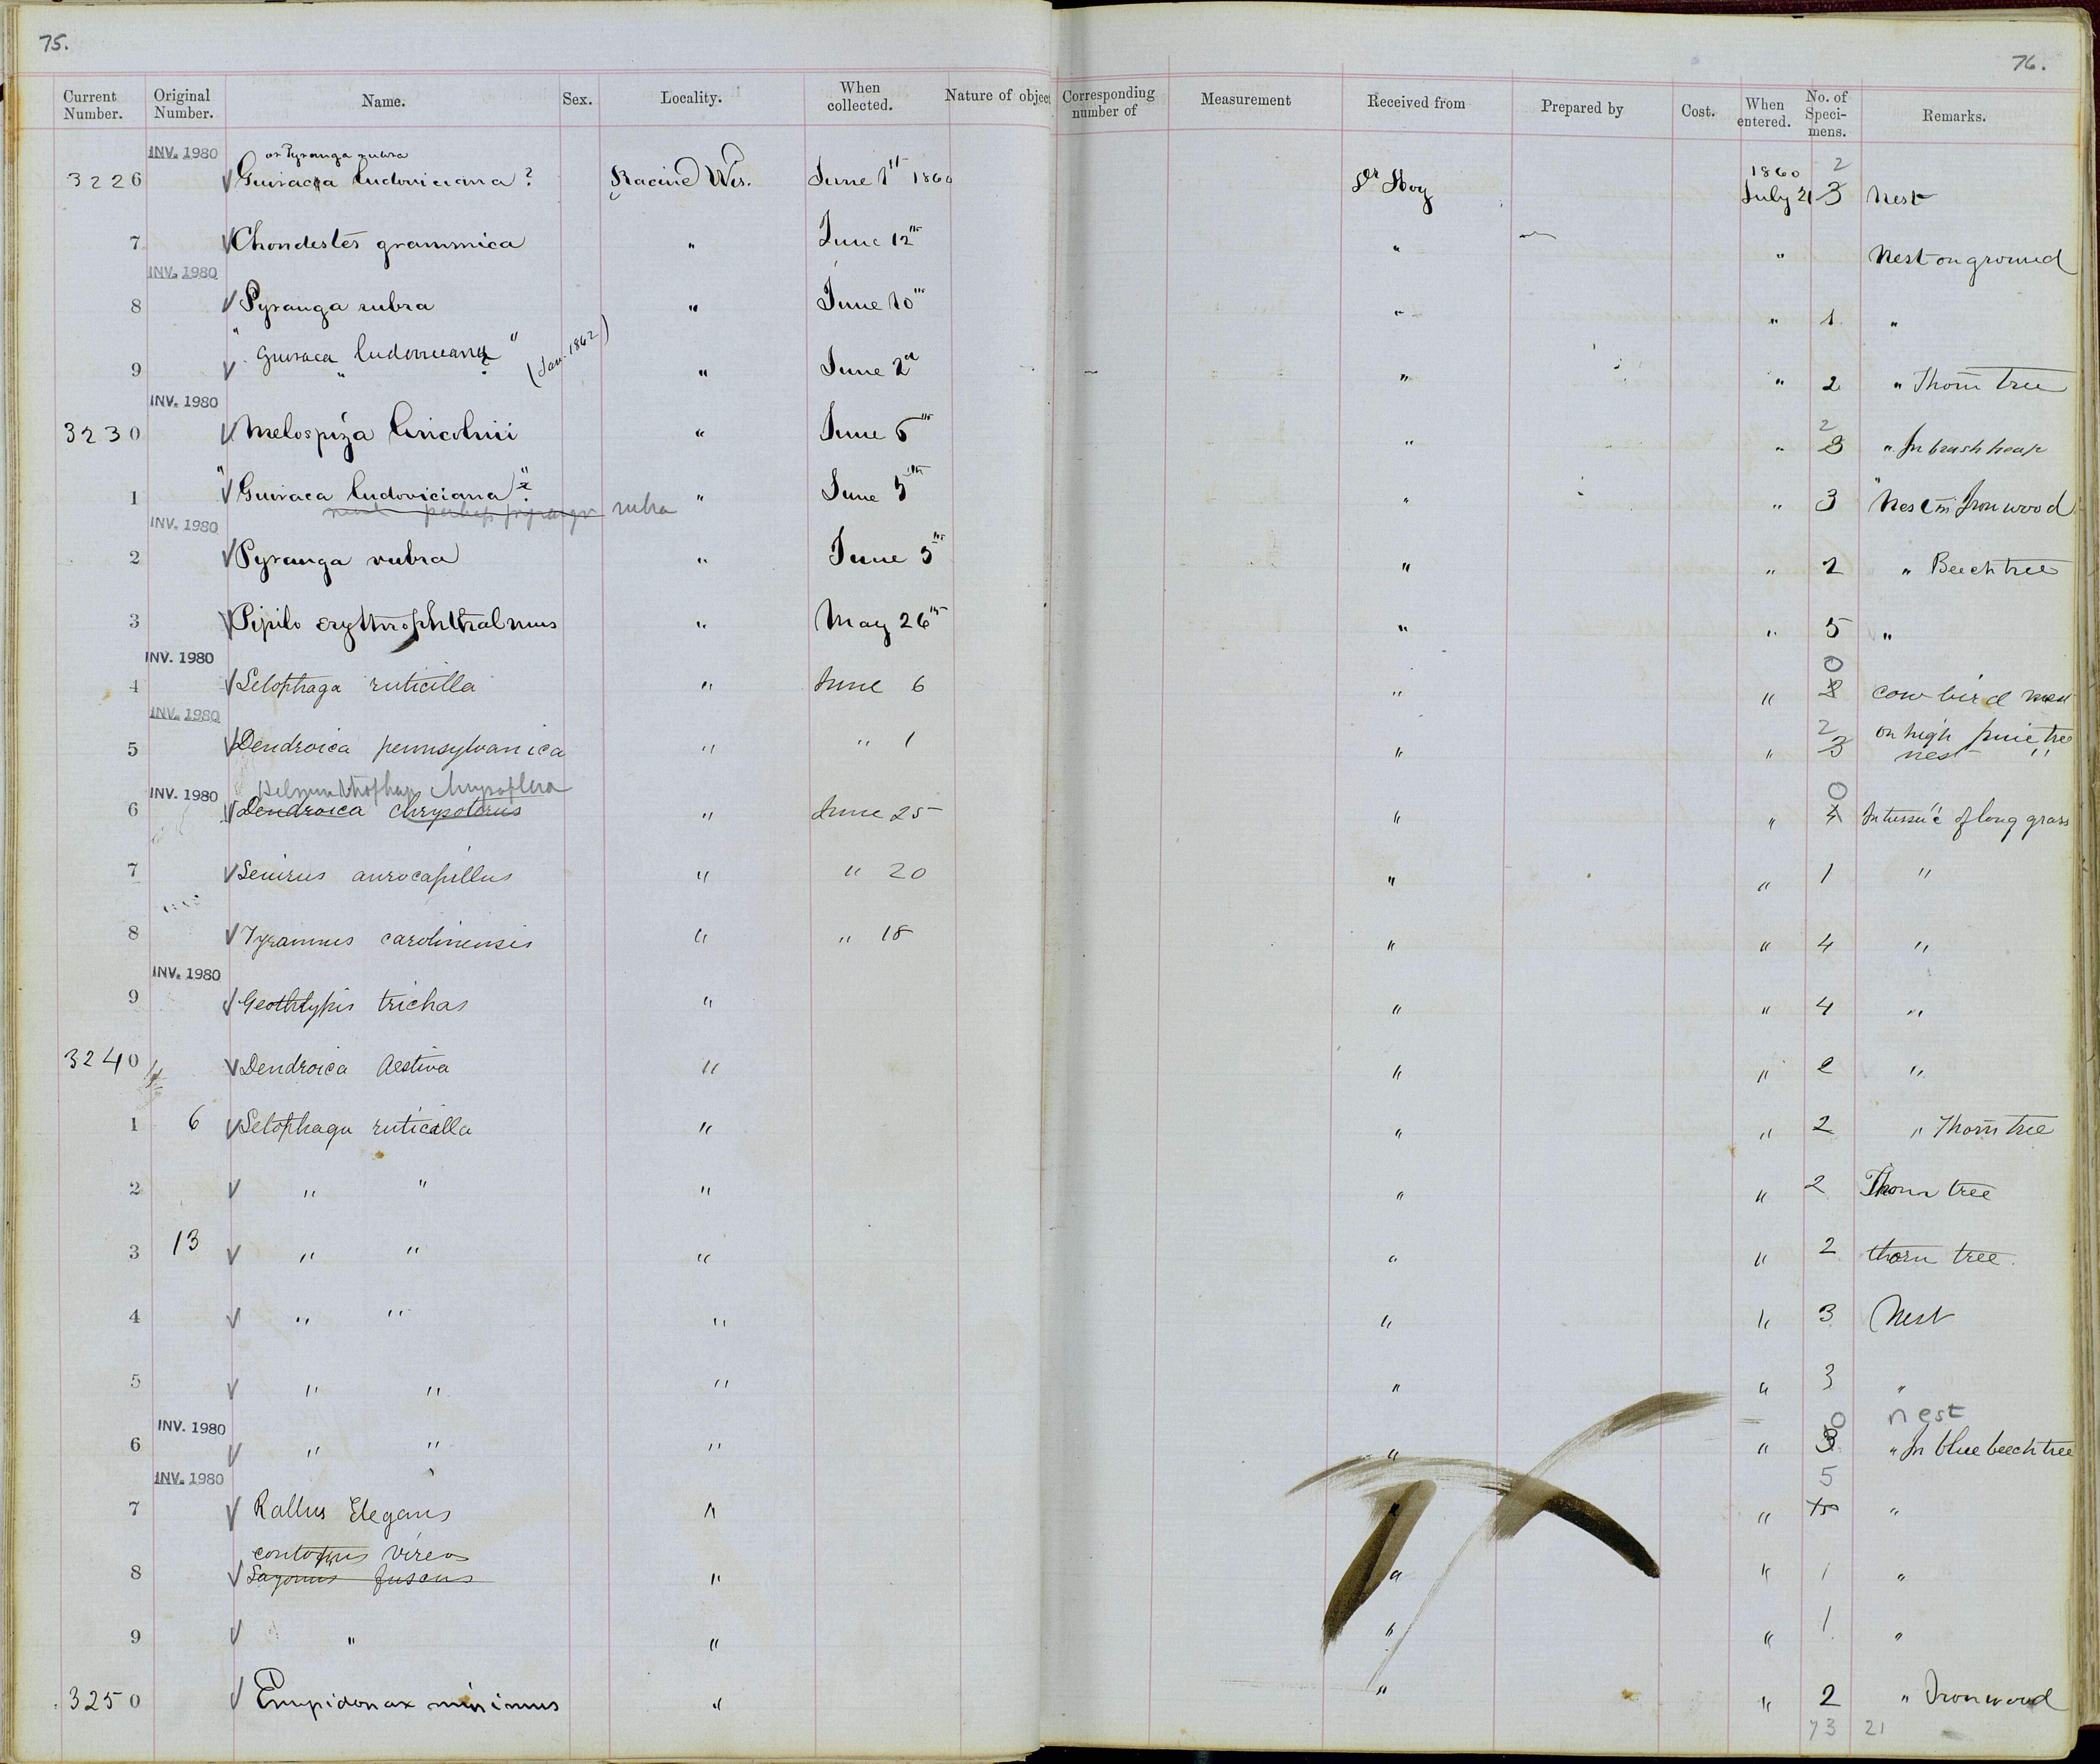 75.
76.
Current Number. Original Number. Name. Sex. Locality. When collected. Nature of object Corresponding number of Measurement Received from Prepared by Cost. When entered. No. of Speci-mens. Remarks.
INV. 1980 or Pyranga rubra 1860 2
3226 Guiraca ludoviciana? Racine Wis. June 1st 1860 Dr Hoy July 21 3 Nest
7 Chondestes grammica " June 12th " " Nest on ground
INV. 1980
8 Pyranga rubra " June 10th " " 1 "
9 "Guiraca ludoviciana" (Jan. 1862) " June 2d " " 2 " Thorn tree
INV. 1980 2
3230 Melospiza lincolnii " June 6th " " 3 " In brush heap
1 "Guiraca ludoviciana"? " June 5th " " 3 "Nest in Ironwood
perhaps pyranga rubra
INV. 1980
2 Pyranga rubra " June 3th " " 2 " Beech tree
3 Pipilo erythrophthalmus " May 26th " " 5 "
INV. 1980 0
4 Setophaga ruticilla " June 6 " " cow bird nest
INV. 1980 2 on high pine tree
5 Dendroica pennsylvanica " " 1 " " 3 nest "
Helminthophaga chrysoptera 0
INV. 1980
6 Dendroica chrysoterus " June 25 " " 4 of long grass
7 Seiurus aurocapillus " " 20 " " 1 "
8 Tyrannus carolinensis " " 18 " " 4 "
INV. 1980
9 Geothlypis trichas " " " 4 "
3240 Dendroica Aestiva " " " 2 "
1 6 Setophaga ruticilla " " " 2 " Thorn tree
2 " " " " " 2 Thorn tree
3 13 " " " " " 2 thorn tree.
4 " " " " " 3 Nest
5 " " " " " 3 "
INV. 1980 0 nest
6 " " " " " " In blue beech tree
INV. 1980 5
7 Rallus Elegans " " " "
contopus virens
8 Sayornis fuscus " " " 1 "
9 " " " " 1 "
3250 Empidonax minimus " " " 2 " Ironwood
73 21